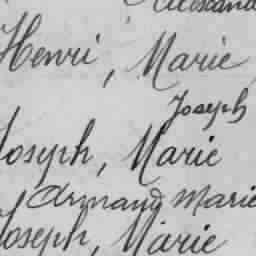 Alexand
Henri, Marie
Joseph
Joseph, Marie
Armand Marie
Joseph, Marie